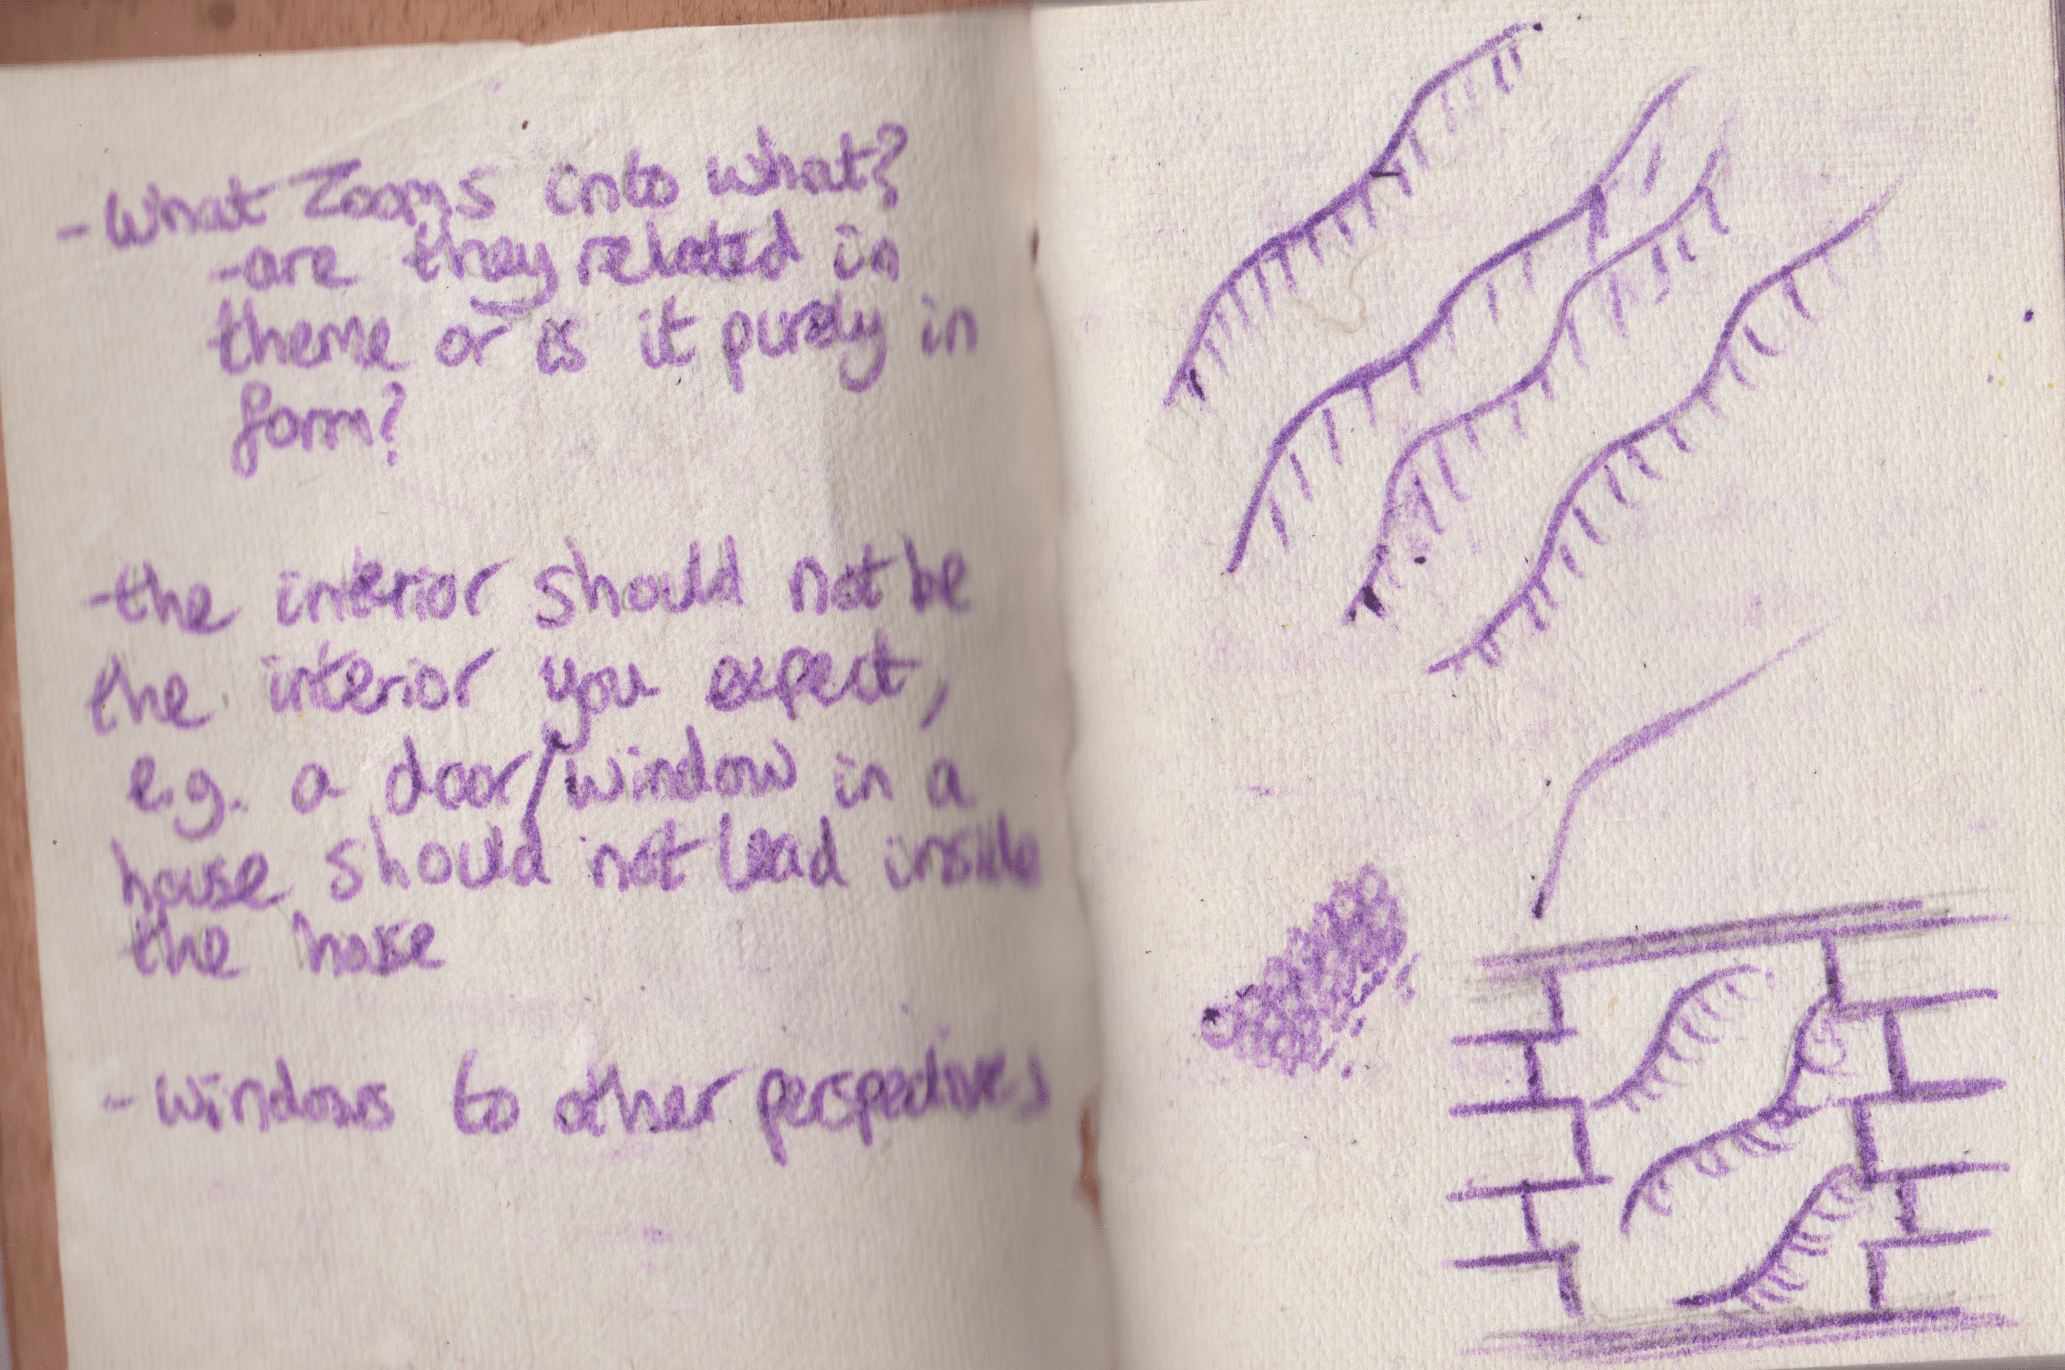 - What zooms into what?
- are they related in
theme or is it purely in
form?
- the interior should not be
the interior you expect,
e.g. a door/window in a
house should not lead inside
the house
- windows to other perspectives